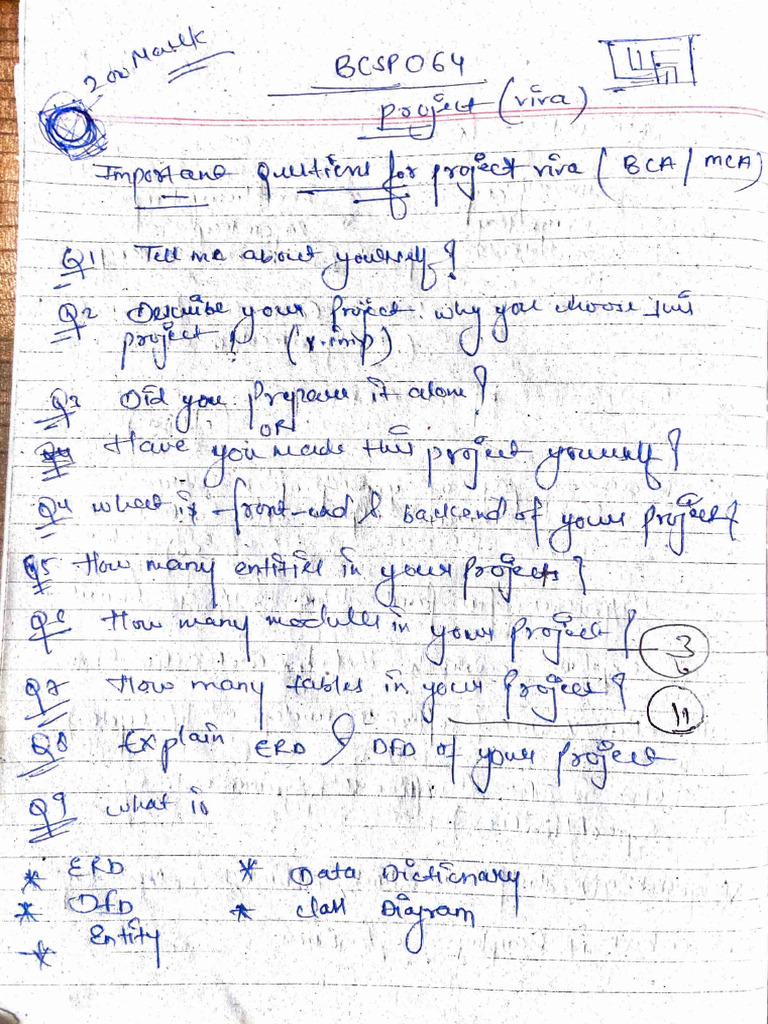 200 Mark
BCSP064
Project (viva)
Important Questions for project viva (BCA / MCA)
Q1 Tell me about yourself?
Q2 Describe your Project. why you choose this
project? (v.imp)
Q3 Did you Prepare it alone?
OR
Have you made this project yourself?
Q4 what is front-end & backend of your project?
Q5 How many entities in your projects?
Q6 How many modules in your project? 3
Q7 How many tables in your project? 11
Q8 Explain ERD & DFD of your project
Q9 what is
* ERD * Data Dictionary
* DFD * Class Diagram
* Entity